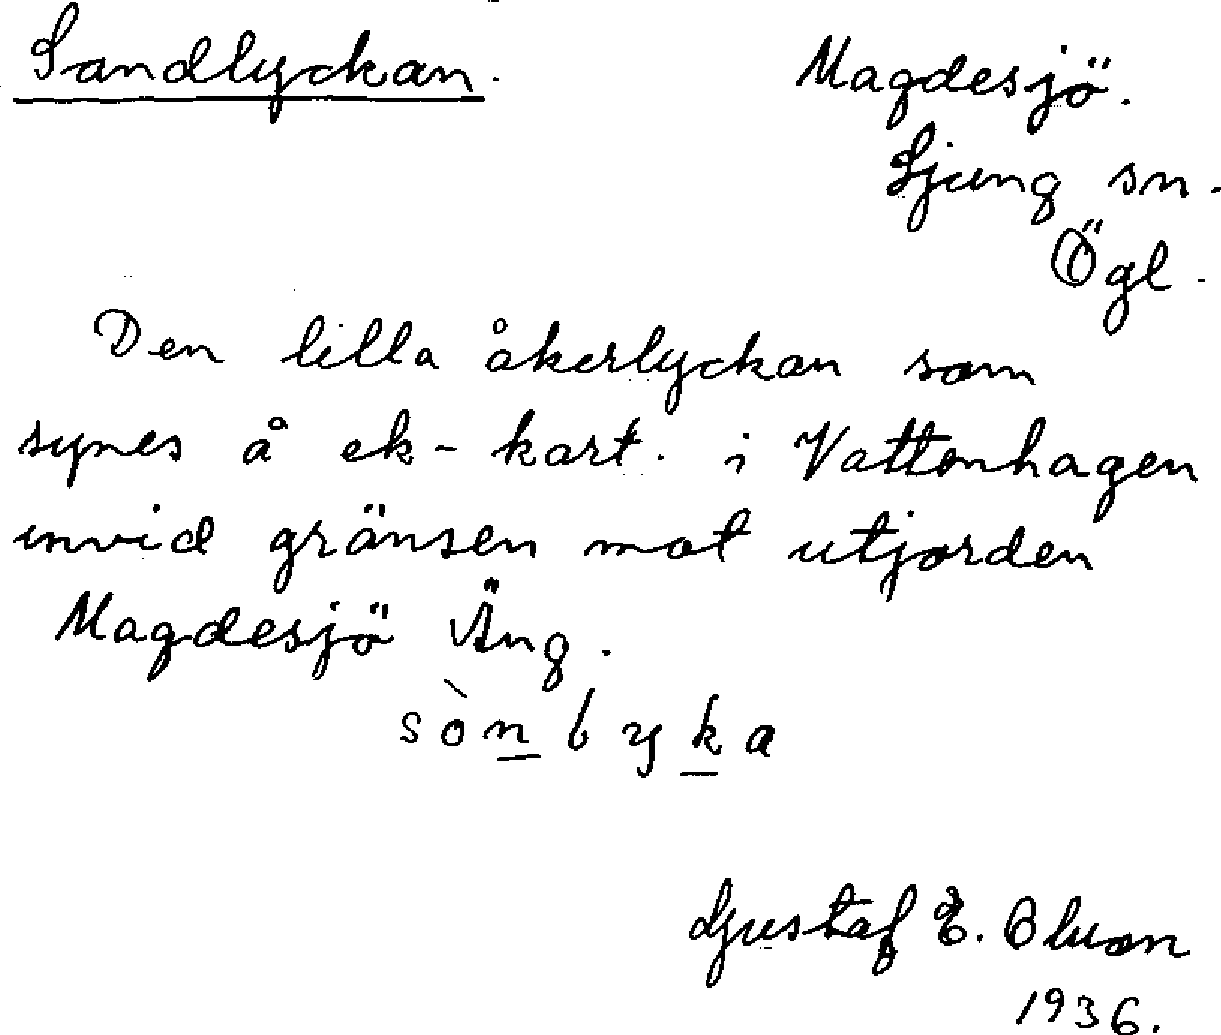 Sandlyckan.
Magdesjö.
Ljung sn.
Ögl.
Den lilla åkerlyckan som
synes å ek-kart. i Vattenhagen
invid gränsen mot utjorden
Magdesjö Äng.
Gustaf E. Olson
1936.